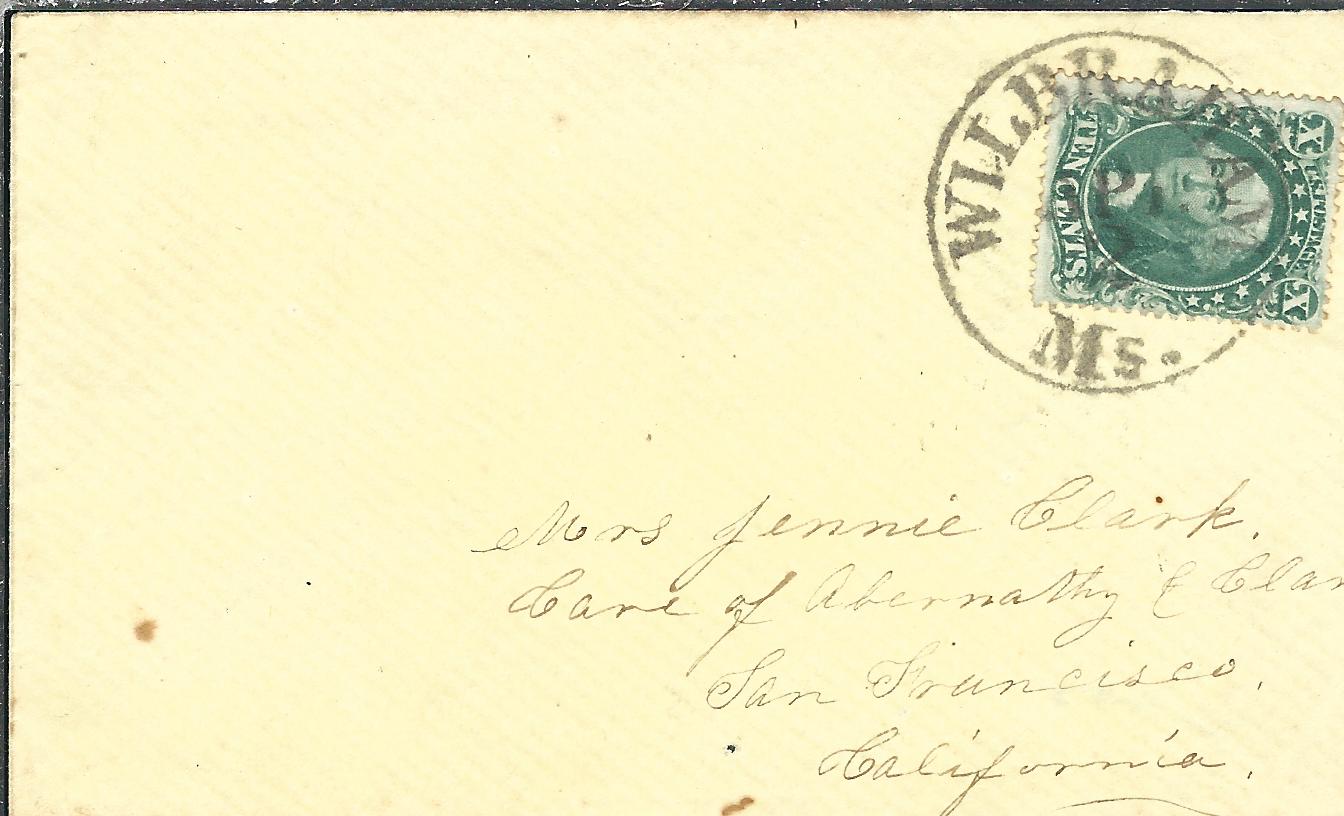 WILBRAHAM
Ms.
TEN CENTS
X
X
Mrs Jennie Clark.
Care of Abernathy & Clar
San Francisco.
California.